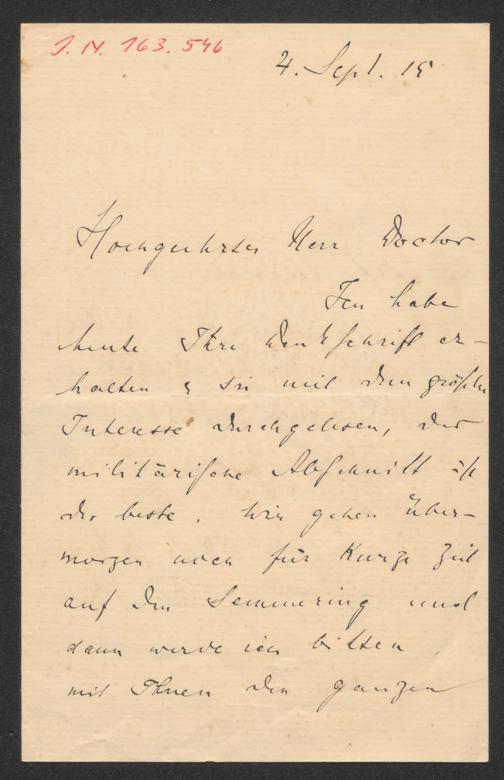 J. N. 163.546
4. Sept. 15
Hochgeehrter Herr Doctor
Ich habe
heute Ihre Denkschrift er-
halten & sie mit dem größten
Interesse durchgelesen, der
militärische Abschnitt ist
der beste. Wir gehen über-
morgen noch für kurze Zeit
auf den Semmering und
dann werde ich bitten,
mit Ihnen den ganzen